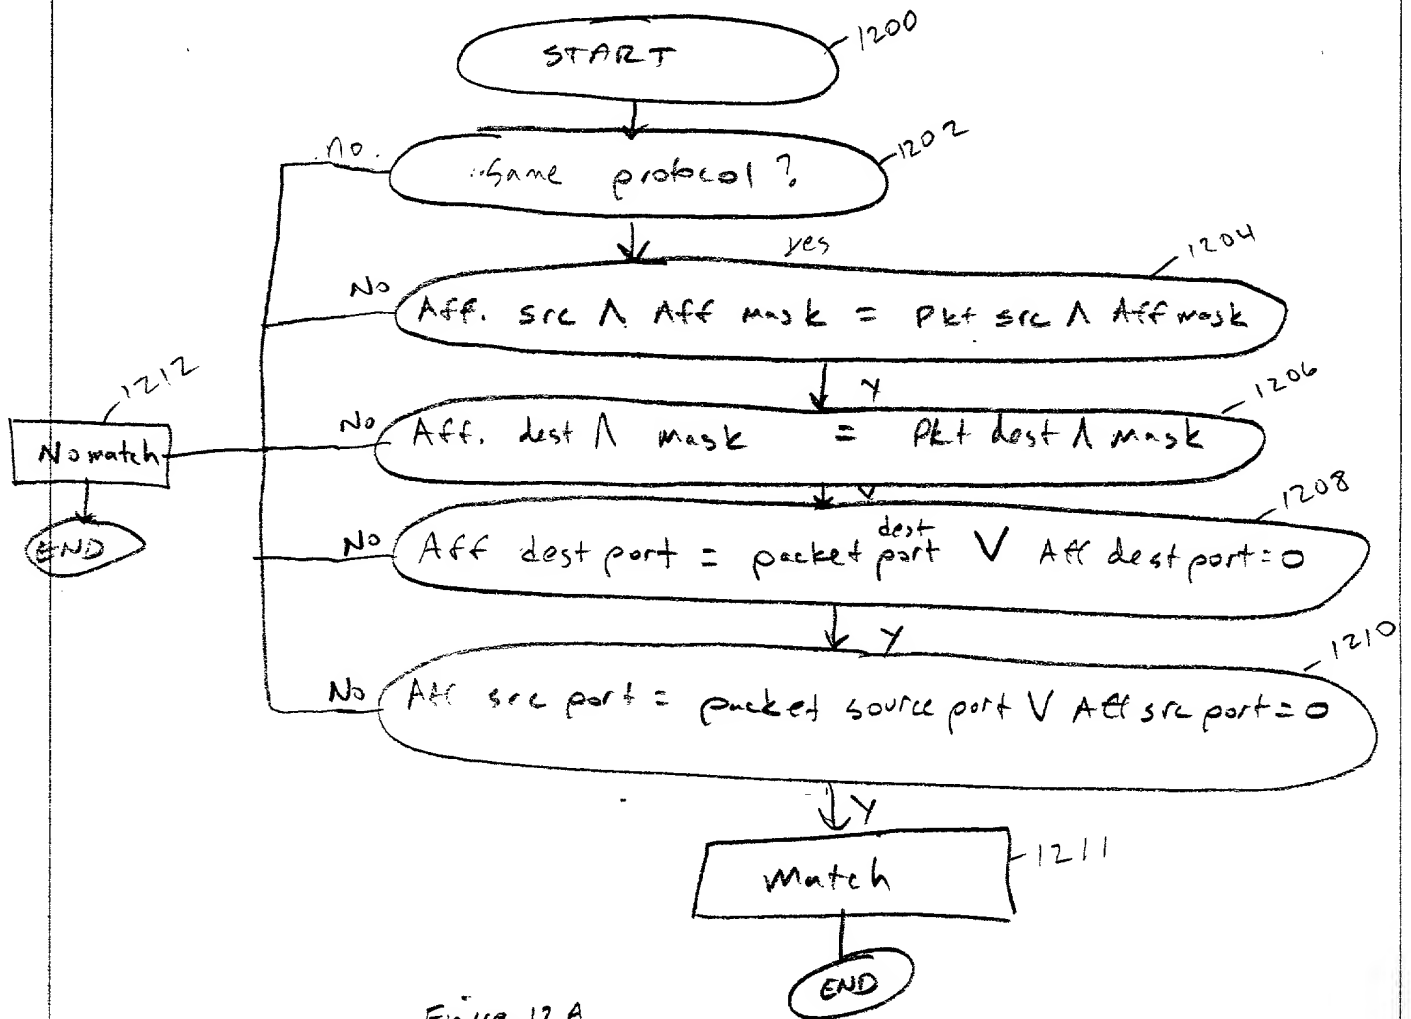 START
1200
no.
Same protocol?
1202
yes
1204
No
Aff. src Λ Aff mask = Pkt src Λ Aff mask
1212
Y
1206
No match
No
Aff. dest Λ mask = Pkt dest Λ mask
Y
1208
END
No
Aff dest port = packet dest port V Aff dest port = 0
Y
1210
No
Aff src port = packet source port V Aff src port = 0
Y
Match
1211
END
Figure 12A